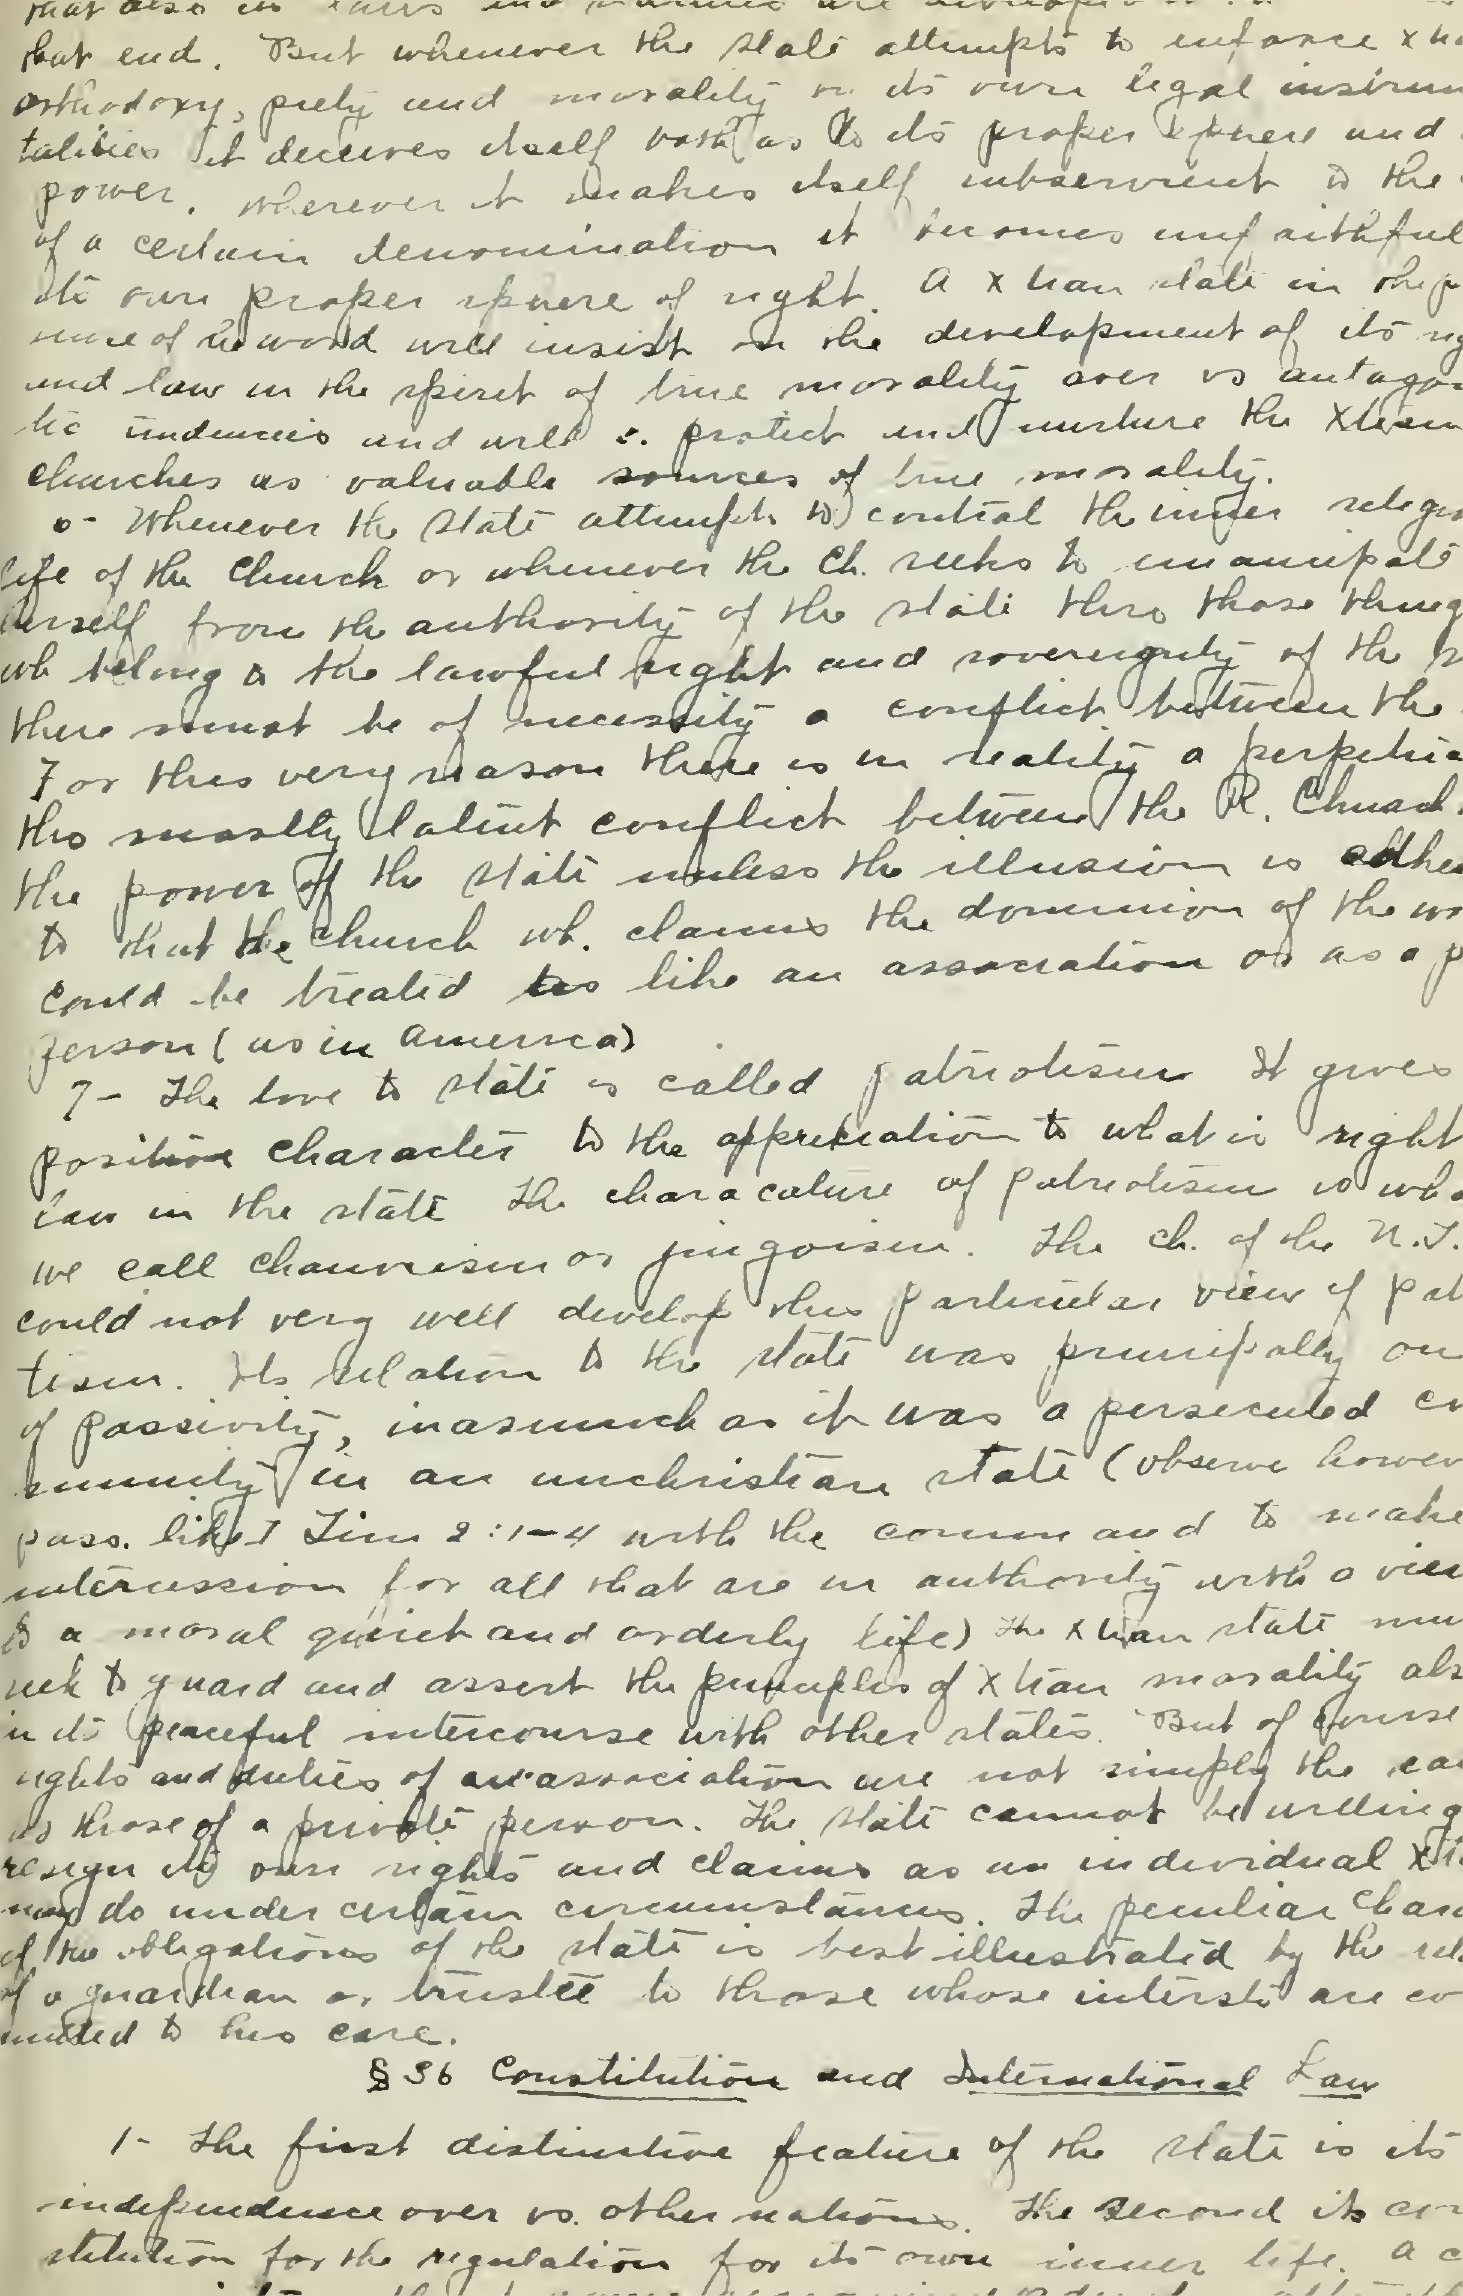 that also in laws and
that end. But whenever the state attempts to enforce x
orthodoxy, piety and morality in its own legal instrum
talities it deceives itself both as to its proper sphere and
power. Wherever it makes itself subservient to the
of a certain denomination it becomes unfaithful
its own proper sphere of right. A Xtian state in the p
sense of the word will insist on the development of its rig
and law in the spirit of true morality over vs antagon
tic tendencies and will protect and nurture the Xtian
churches as valuable sources of true morality.
6- Whenever the state attempts to control the inner religio
life of the Church or whenever the Ch. seeks to emancipate
herself from the authority of the state thro those things
wh belong to the lawful right and sovereignty of the s
there must be of necessity a conflict between the
For this very reason there is in reality a perpetua
tho mostly latent conflict between the R. Church
the power of the state unless the illusion is adhe
to that the Church wh. claims the dominion of the wo
could be treated like an association or as a p
person (as in America)
7- The love to state is called patriotism It gives
position character to the appreciation to what is right
law in the state The characature of patriotism is wha
we call chauvinism or jingoism. The ch. of the N.T.
could not very well develop this particular view of pat
tism. Its relation to the state was principally on
of passivity, inasmuch as it was a persecuted co
munity in an unchristian state (observe howev
pass. like I Tim 2:1-4 with the command to make
intercession for all that are in authority with a view
to a moral quiet and orderly life) The Xtian state mu
seek to guard and assert the principles of Xtian morality als
in its peaceful intercourse with other states. But of course
rights and duties of an association are not simply the
as those of a private person. The state cannot be willing
resign its own rights and claims as an individual Xti
may do under certain circumstances. The peculiar char
of the obligations of the state is best illustrated by the rel
of a guardian or trustee to those whose interests are co
mitted to his care.
§ 36 Constitution and International Law
1- The first distinctive feature of the state is its
independence over vs. other nations. The second its con
stitution for the regulation for its own inner life. A c